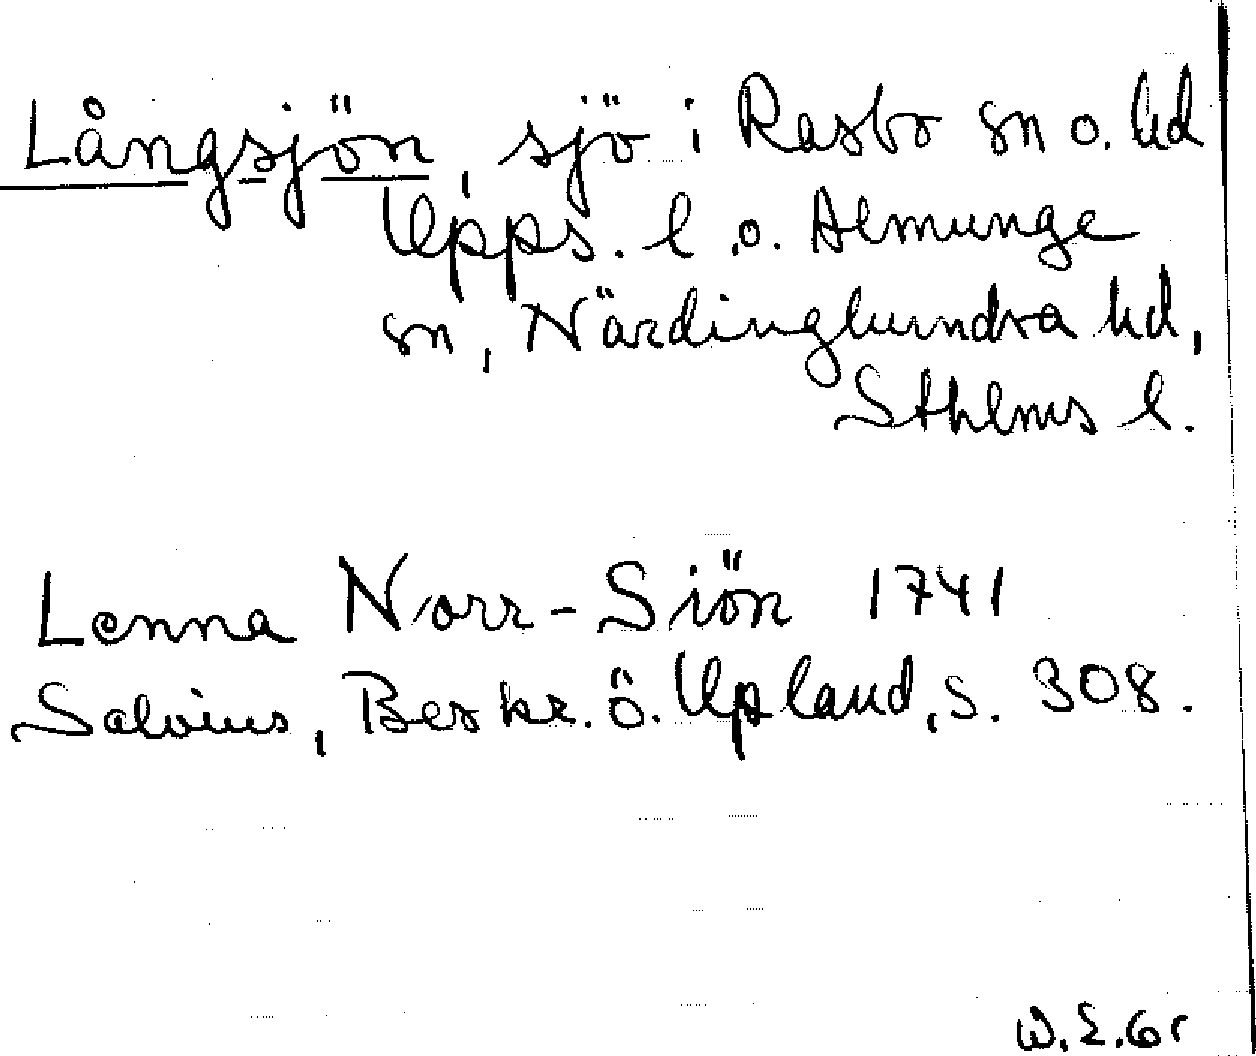 Långsjön, sjö i Rasbo sn o. hd
Upps. l. o. Almunge
sn, Närdinghundra hd,
Sthlms l.
Lenna Norr-Siön 1741
Salvius, Beskr. ö. Upland, s. 308.
W.E.Gr